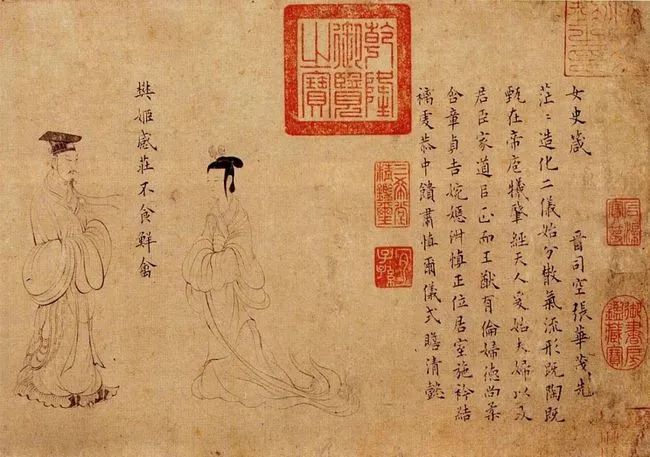 女史箴 晉司空張華茂先
茫〻造化二儀始分散氣流形既陶既
甄在帝庖犧肇經天人爰始夫婦以及
君臣家道以正而王猷有倫婦德尚柔
含章貞吉婉嫕淑慎正位居室施衿結
褵虔恭中饋肅慎爾儀式瞻清懿
樊姬感莊不食鮮禽
乾隆御覽之寶
三希堂精鑑璽
宜子孫
石渠寶笈
御書房鑑藏寶